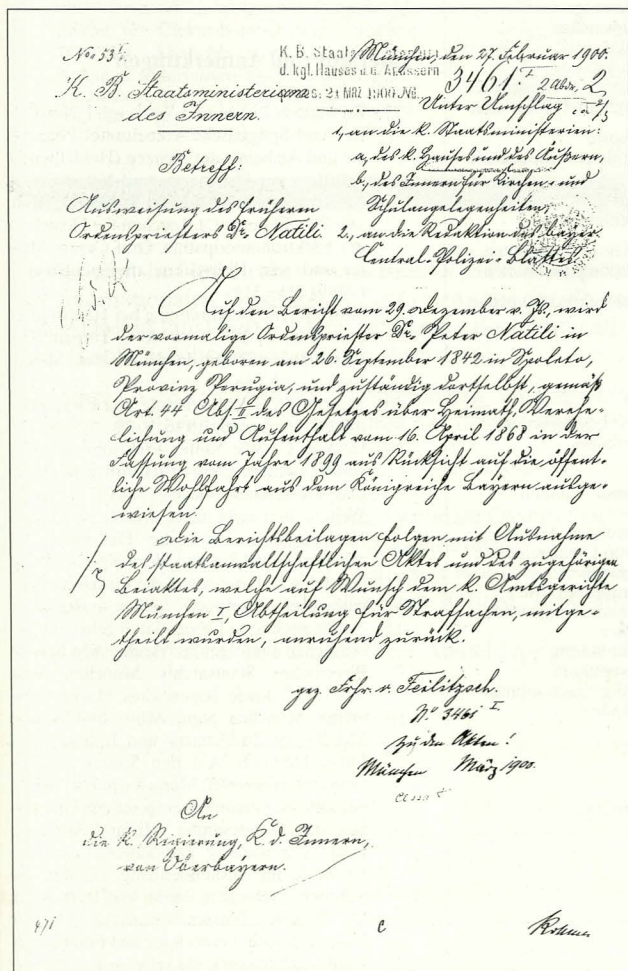 München, den 27. Februar 1900.
K. B. Staats
d. kgl. Hauses u. d. Aeussern
3461. I 2 Abdr. 2
K. B. Staatsministerium
des Innern.
Unter Umschlag
1, an die k. Staatsministerien:
a, des k. Hauses und des Äußern,
b, des Innern für Kirchen- und
Schulangelegenheiten,
2, an die Redaktion des bayer.
Central-Polizei-Blattes.
Betreff:
Ausweisung des früheren
Ordenspriesters Dr. Natili
Auf den Bericht vom 29. Dezember v. Js. wird
der vormalige Ordenspriester Dr. Peter Natili in
München, geboren am 26. September 1842 in Spoleto,
Provinz Perugia, und zuständig dortselbst, gemäß
Art. 44 Abs. I des Gesetzes über Heimath, Verehe-
lichung und Aufenthalt vom 16. April 1868 in der
Fassung vom Jahre 1899 aus Rücksicht auf die öffent-
liche Wohlfahrt aus dem Königreiche Bayern ausge-
wiesen.
Die Berichtsbeilagen folgen mit Ausnahme
des staatsanwaltschaftlichen Aktes und des zugehörigen
Beiaktes, welche auf Wunsch dem k. Amtsgerichte
München I, Abtheilung für Strafsachen, mitge-
theilt wurden, anruhend zurück.
gez. Frhr. v. Feilitzsch.
No. 3461 I
Zu den Akten!
München März 1900.
An
die k. Regierung, K. d. Innern,
von Oberbayern.
471